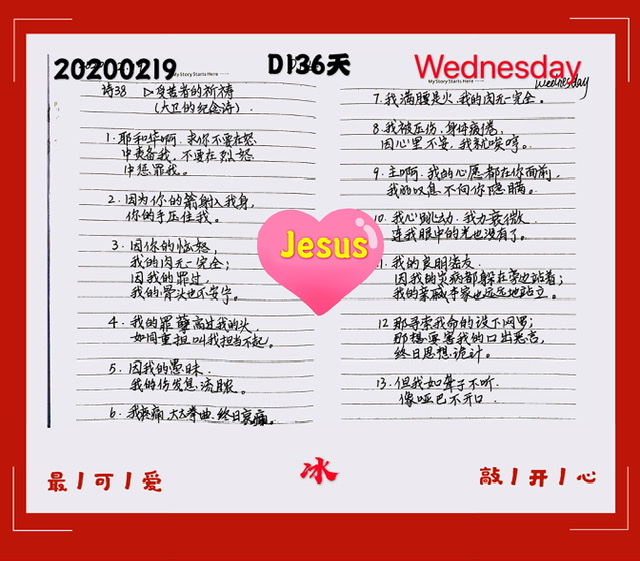 20200219
D136天
Wednesday
My Story Starts Here
Wednesday
诗38 ▷受苦者的祈祷
(大卫的纪念诗).
1. 耶和华啊，求你不要在怒
中责备我，不要在烈怒
中惩罚我。
2. 因为你的箭射入我身，
你的手压住我。
3. 因你的恼怒，
我的肉无一完全；
因我的罪过，
我的骨头也不安宁。
4. 我的罪孽高过我的头，
如同重担叫我担当不起。
5. 因我的愚昧，
我的伤发臭流脓。
6. 我疼痛，大大拳曲，终日哀痛。
7. 我满腰是火，我的肉无一完全。
8. 我被压伤，身体疲倦，
因心里不安，我就唉哼。
9. 主啊，我的心愿都在你面前，
我的叹息不向你隐瞒。
10. 我心跳动，我力衰微，
连我眼中的光也没有了。
我的良朋密友，
因我的灾病都躲在旁边站着；
我的亲戚本家也远远地站立。
12 那寻索我命的设下网罗；
那想要害我的口出恶言，
终日思想诡计。
13. 但我如聋子不听，
像哑巴不开口.
Jesus
最|可|爱
冰
敲|开|心